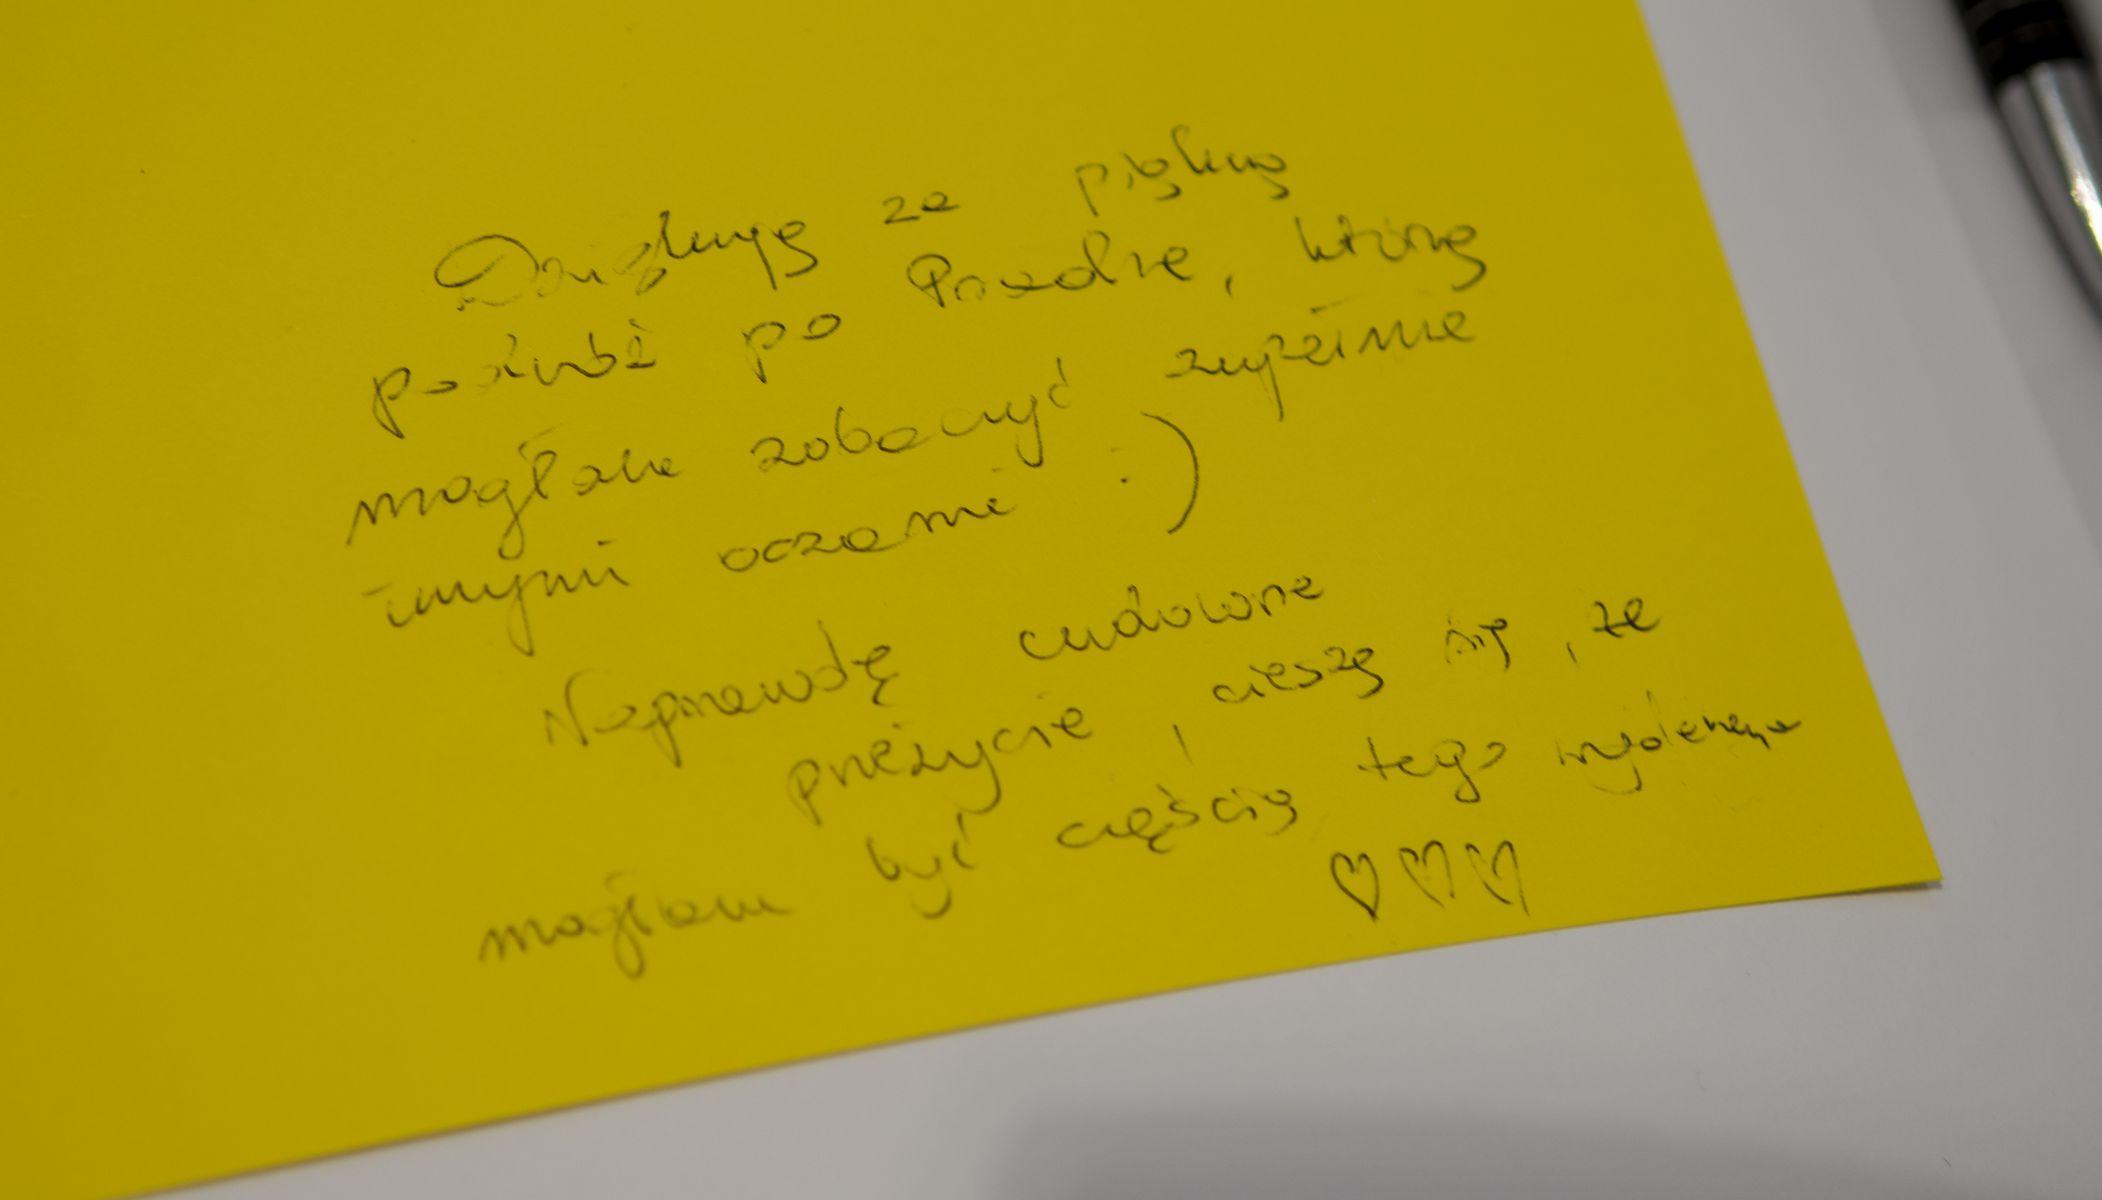 Dziękuję za piękną
podróż po Pradze, którą
mogłam zobaczyć zupełnie
innymi oczami :)
Naprawdę cudowne
przeżycie, cieszę się, że
mogłam być częścią tego wydarzenia
♡♡♡